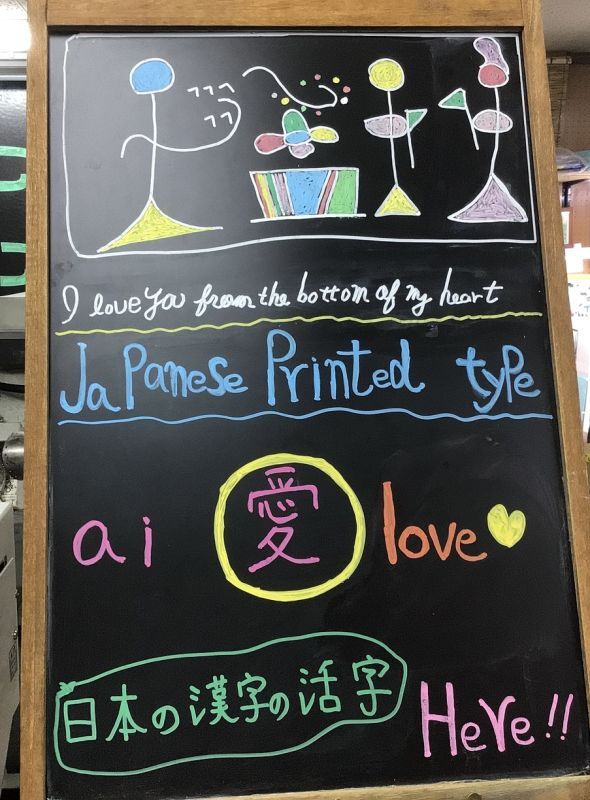 I love you from the bottom of my heart
Japanese Printed type
ai 愛 love
日本の漢字の活字
Here!!